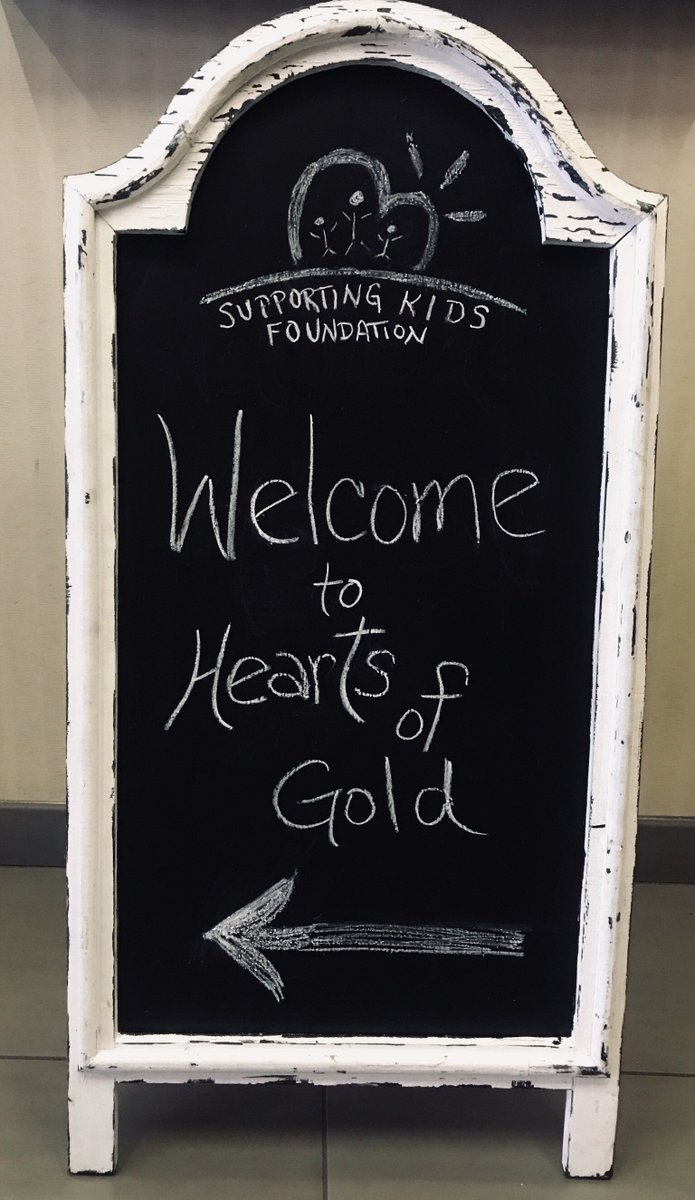 SUPPORTING KIDS
FOUNDATION
Welcome
to
Hearts
of
Gold